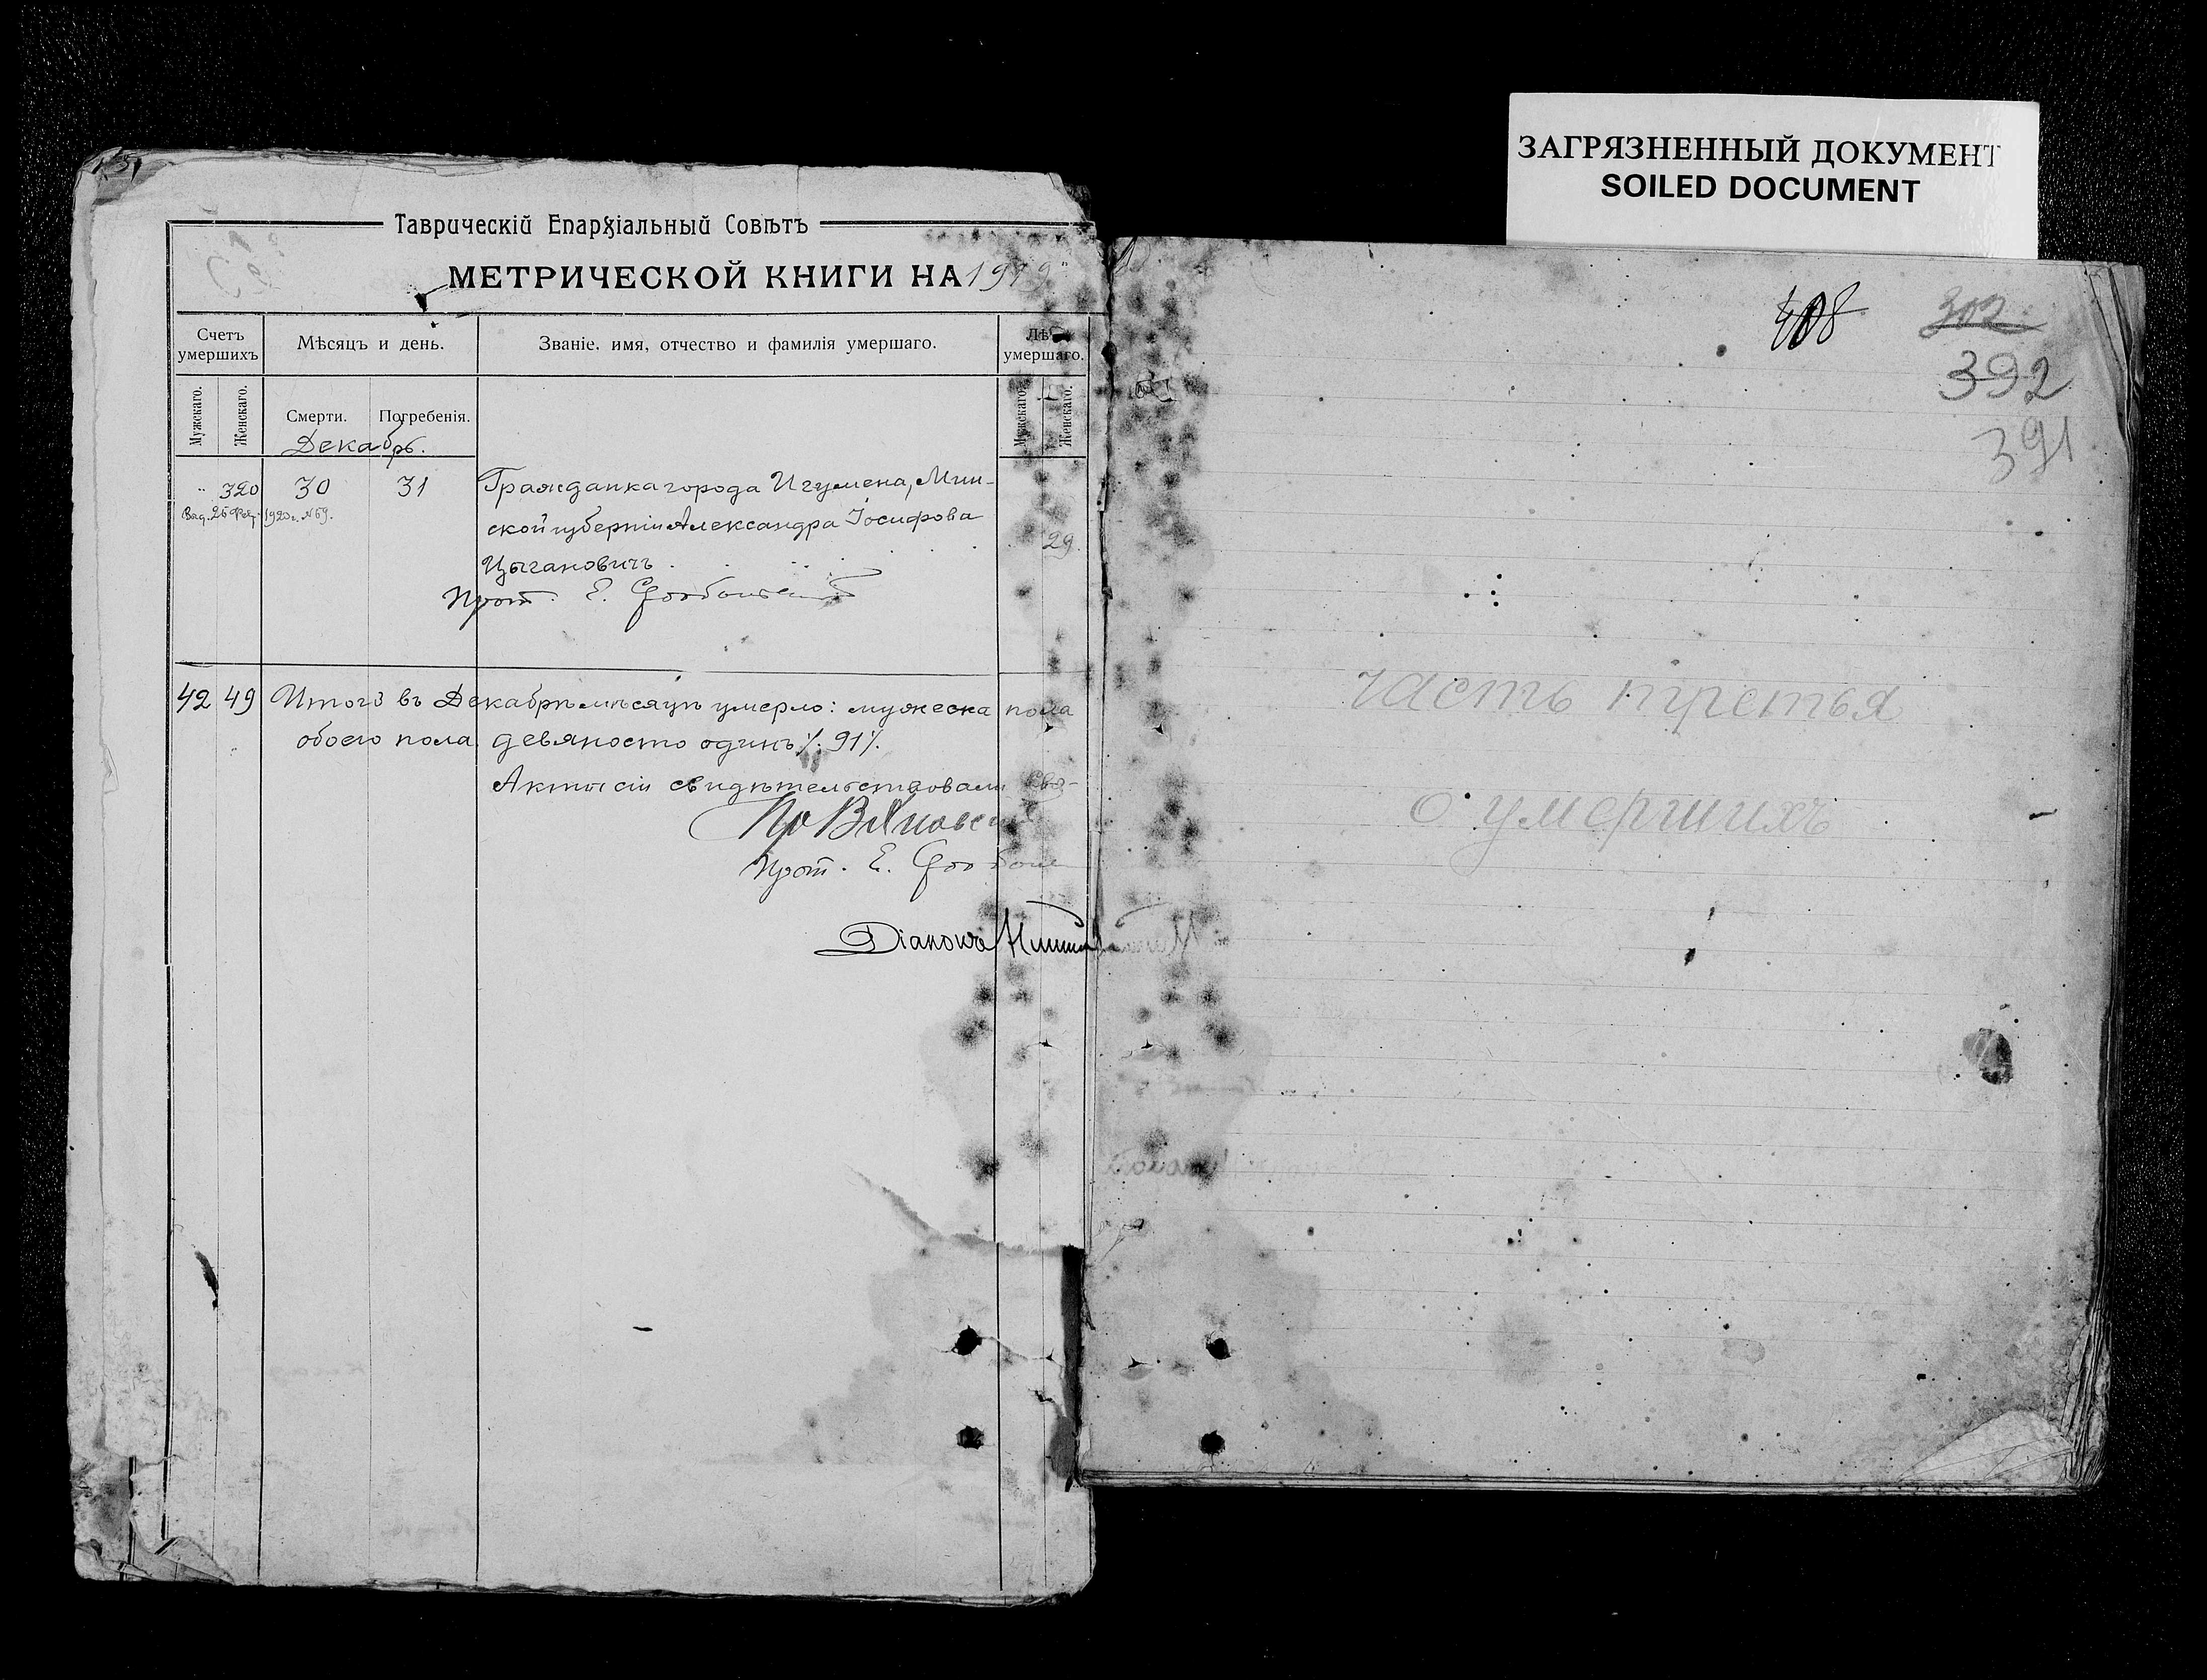 ЗАГРЯЗНЕННЫЙ ДОКУМЕНТ
SOILED DOCUMENT
Таврическій Епархіальный Совѣтъ
МЕТРИЧЕСКОЙ КНИГИ НА 1919
Счетъ умершихъ
Мѣсяцъ и день.
Званіе, имя, отчество и фамилія умершаго.
умершаго.
Мужскаго.
Женскаго.
Смерти.
Погребенія.
Мужскаго.
Женскаго.
Декабрь.
" 320 30 31 Гражданка города Игумена, Мин-
1920 г. №69.
ской губерніи Александра Іосифова
29.
Цыгановичъ
Прот. Е.
42 49 Итого въ Декабрѣ мѣсяцѣ умерло: мужеска пола
обоего пола девяносто одинъ /. 91 /.
Акты сіи свидѣтельствовали
Прот. Е.
Діаконъ
408
302
392
391
часть третья
о умершихъ